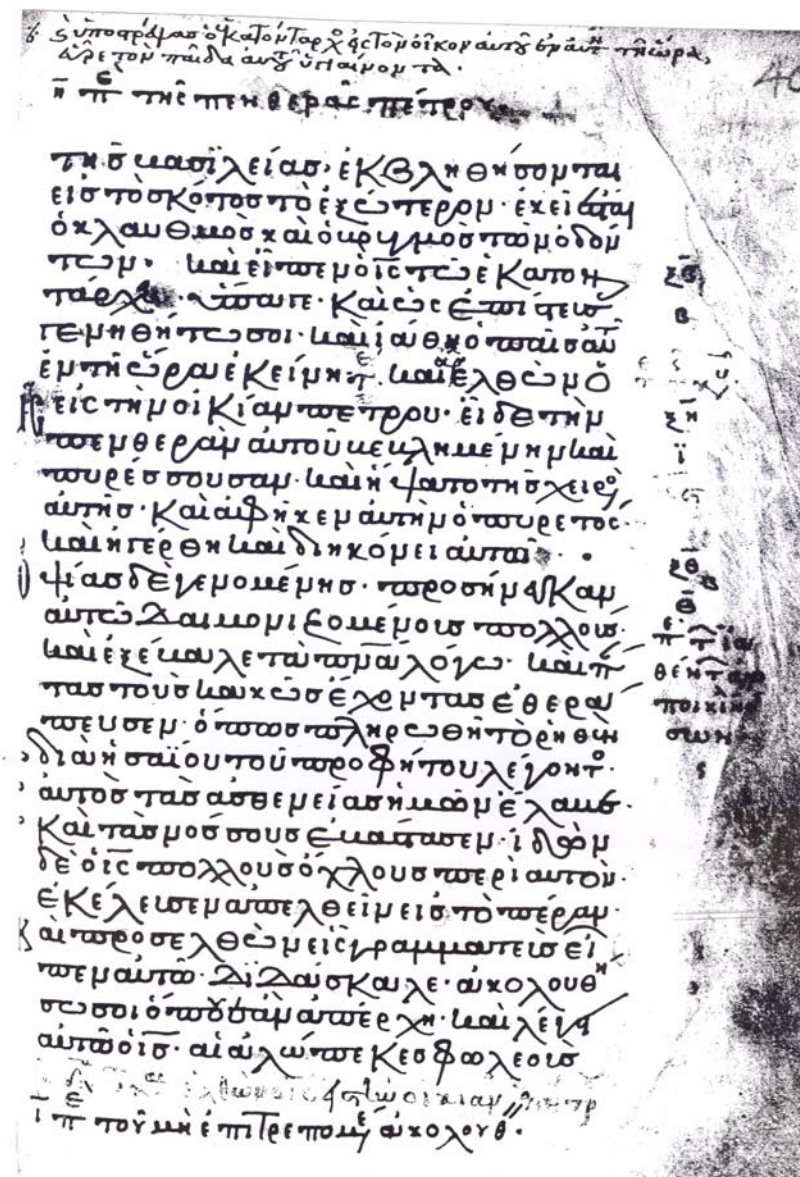 ὑποστρέψας ὁ ἑκατόνταρχος εἰς τὸν οἶκον αὐτοῦ ἐν αὐτῆ τῆ ὥρα,
εὗρε τὸν παῖδα αὐτοῦ ὑγιαίνοντα.
η̄ πε τῆς πενθερᾶς πέτρου.
τῆς βασϊλείας· ἐκβληθήσονται
εἰς τὸ σκότος τὸ ἐξώτερον· ἐκεῖ ἔσται
ὁ κλαυθμὸς καὶ ὁ βρυγμὸς τῶν ὀδόν
των· καὶ εἶπεν ὁ ις τῶ ἑκατον
τάρχω· ὕπαγε· καὶ ὡς ἐπίστευ
γενηθήτω σοι· καὶ ἰάθη ὁ παῖς αὐτ
ἐν τῆ ὥρα ἐκείνη· καὶ ἐλθὼν ὁ
εἰς τὴν οἰκίαν πέτρου· εἶδε τὴν
πενθερὰν αὐτοῦ βεβλημένην καὶ
πυρέσσουσαν· καὶ ἥψατο τῆς χειρὸ
αὐτῆς· καὶ ἀφῆκεν αὐτὴν ὁ πυρετός·
καὶ ἠγέρθη καὶ διηκόνει αὐτῶ
ψίας δὲ γενομένης· προσήνεγκαν
αὐτῶ δαιμονιζομένους πολλούς·
καὶ ἐξέβαλε τὰ πνᾱ λόγω· καὶ π
τας τοὺς κακῶς ἔχοντας ἐθερά
πευσεν· ὅπως πληρωθῆ τὸ ῥηθὲν
διὰ ἡσαΐου τοῦ προφήτου λέγοντο·
αὐτὸς τὰς ἀσθενείας ἡμῶν ἔλαβε·
καὶ τὰς νόσους ἐβάστασεν· ἰδὼν
δὲ ὁ ις πολλοὺς ὄχλους περὶ αὐτὸν·
ἐκέλευσεν ἀπελθεῖν εἰς τὸ πέραν·
κ αὶ προσελθὼν εἷς γραμματεὺς εἶ
πεν αὐτῶ· διδάσκαλε· ἀκολουθή
σω σοι ὅπου ἐὰν ἀπέρχη· καὶ λέγει
αὐτῶ ὁ ις· αἱ ἀλώπεκες φωλεοὺς
ῑ πε τοῦ μὴ ἐπιτρεπομένου ἀκολουθ